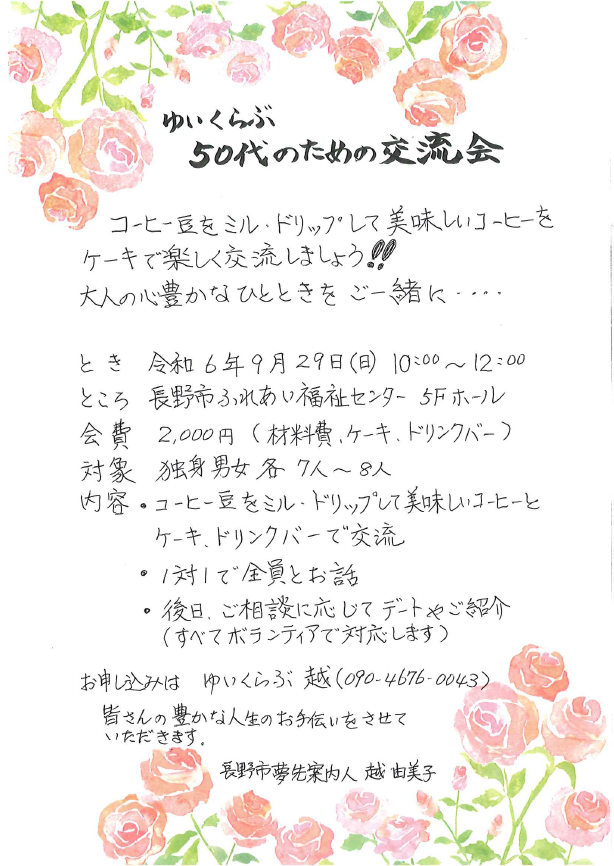 ゆいくらぶ
50代のための交流会
コーヒー豆をミル・ドリップして美味しいコーヒーを
ケーキで楽しく交流しましょう!!
大人の心豊かなひとときをご一緒に・・・・
とき 令和6年9月29日(日) 10:00～12:00
ところ 長野市ふれあい福祉センター 5Fホール
会費 2,000円 (材料費、ケーキ、ドリンクバー)
対象 独身男女各 7人～8人
内容・コーヒー豆をミル・ドリップして美味しいコーヒーと
ケーキ、ドリンクバーで交流
・1対1で全員とお話
・後日、ご相談に応じてデートやご紹介
(すべてボランティアで対応します)
お申し込みは ゆいくらぶ 越(090-4676-0043)
皆さんの豊かな人生のお手伝いをさせて
いただきます。
長野市夢先案内人 越 由美子